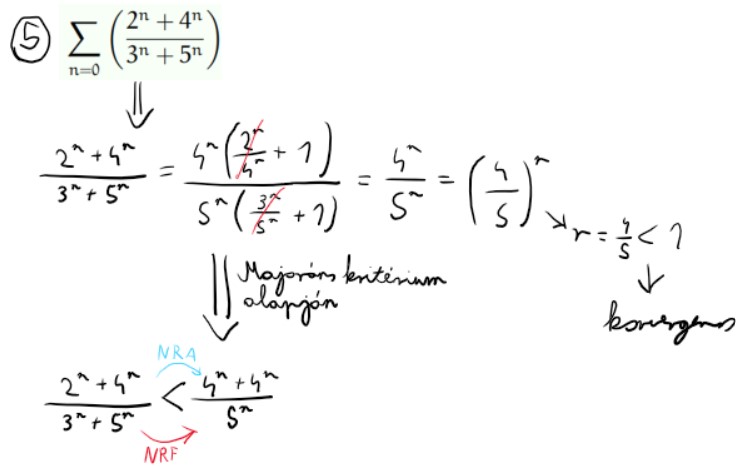 5 ∑ n=0 ( (2ⁿ + 4ⁿ) / (3ⁿ + 5ⁿ) )
⇓
(2ⁿ + 4ⁿ) / (3ⁿ + 5ⁿ) = 4ⁿ (2ⁿ/4ⁿ + 1) / 5ⁿ (3ⁿ/5ⁿ + 1) = 4ⁿ / 5ⁿ = (4/5)ⁿ
↘ r = 4/5 < 1
↓
konvergens
⇓ Majoráns kritérium
alapján
NRA
(2ⁿ + 4ⁿ) / (3ⁿ + 5ⁿ) < (4ⁿ + 4ⁿ) / 5ⁿ
NRF